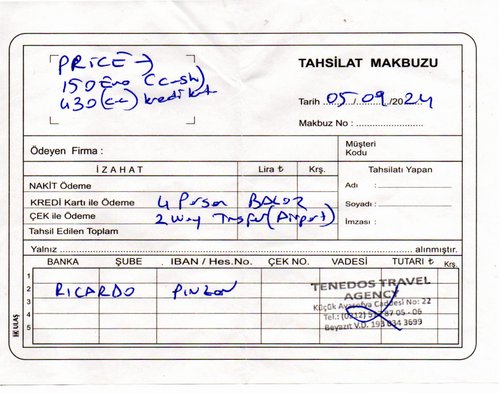 PRICE →
150 Euro (cash)
430 (cc) kredi kart
TAHSİLAT MAKBUZU
Tarih 05/09/2024
Makbuz No :
Ödeyen Firma :
Müşteri
Kodu
İZAHAT Lira ₺ Krş.
Tahsilatı Yapan
NAKİT Ödeme
Adı :
KREDİ Kartı ile Ödeme 4 Person
Soyadı :
ÇEK ile Ödeme 2 way Transfer (Airport)
İmzası :
Tahsil Edilen Toplam
Yalnız alınmıştır.
BANKA ŞUBE IBAN / Hes.No. ÇEK NO. VADESİ TUTARI ₺ Krş.
1
2 RICARDO PINZON
3
4
5
TENEDOS TRAVEL
AGENCY
Küçük Ayasofya Caddesi No: 22
Tel.: (0212) 87 05 - 06
Beyazıt V.D. 3699
İK ULAŞ